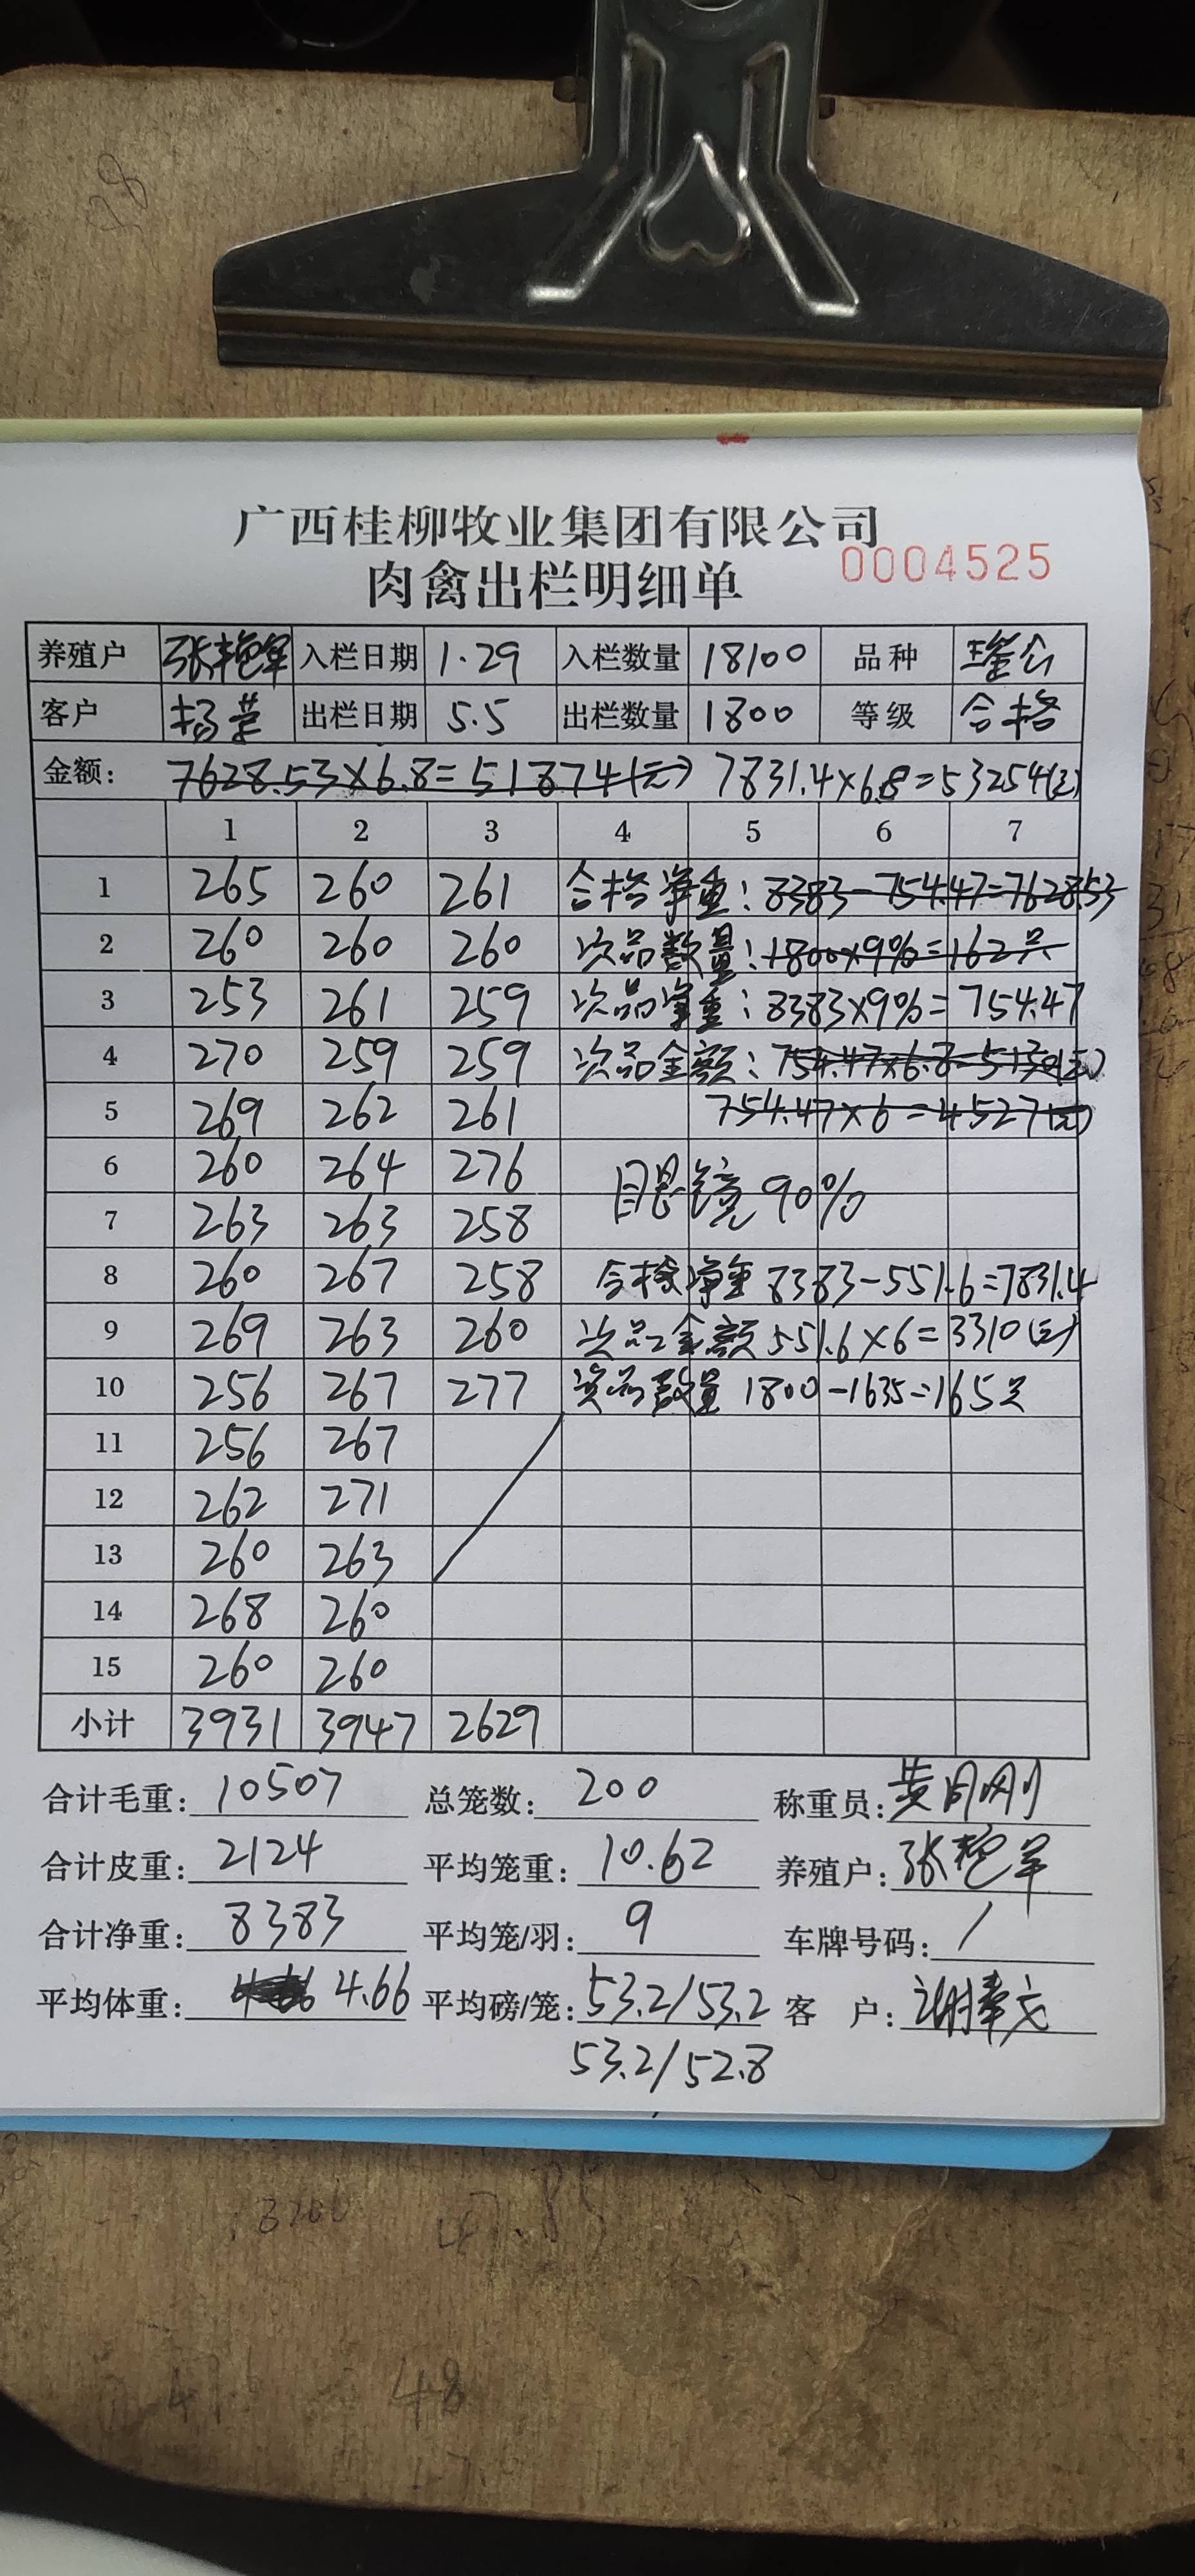 广西桂柳牧业集团有限公司
肉禽出栏明细单 0004525
养殖户 张艳军 入栏日期 1.29 入栏数量 18100 品种
客户 杨营 出栏日期 5.5 出栏数量 1800 等级 合格
金额: 7628.53×6.8=51874(元) 7831.4×6.8=53254(元)
1 2 3 4 5 6 7
1 265 260 261 合格净重:8383-754.47=7628.53
2 260 260 260 次品数量:1800×9%=162只
3 253 261 259 次品净重:8383×9%=754.47
4 270 259 259 次品金额:754.47×6.8=5130(元)
5 269 262 261 754.47×6=4527(元)
6 260 264 276 眼镜90%
7 263 263 258
8 260 267 258 合格净重 8383-551.6=7831.4
9 269 263 260 次品金额 551.6×6=3310(元)
10 256 267 277 次品数量 1800-1635=165只
11 256 267
12 262 271
13 260 263
14 268 260
15 260 260
小计 3931 3947 2629
合计毛重: 10507 总笼数: 200 称重员: 黄周刚
合计皮重: 2124 平均笼重: 10.62 养殖户: 张艳军
合计净重: 8383 平均笼/羽: 9 车牌号码: /
平均体重: 4.66 平均磅/笼: 53.2/53.2 客 户:
53.2/52.8